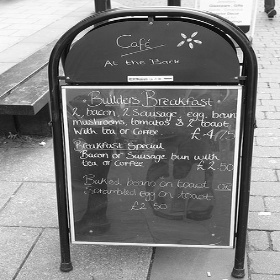 Café
At the Bark
Builders Breakfast
2 bacon, 2 Sausage, egg, bean
mushrooms, tomatos & 2 toast
With tea or Coffee £4.75
Breakfast Special
Bacon or Sausage bun with
tea or Coffee £2.50
Baked beans on toast
Scrambled egg on toast
£3.50